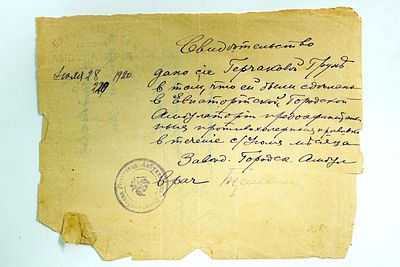 Свидѣтельство
Іюля 28 1920
229
дано сіе Герчаковой Грунѣ
в том, что ей были сдѣланы
в Евпаторійской Городской
Амбулаторіи предохранитель
ныя противохолерныя прививки
в теченіе с/Іюля мѣсяца
Завѣд. Городск. Амбул
врач